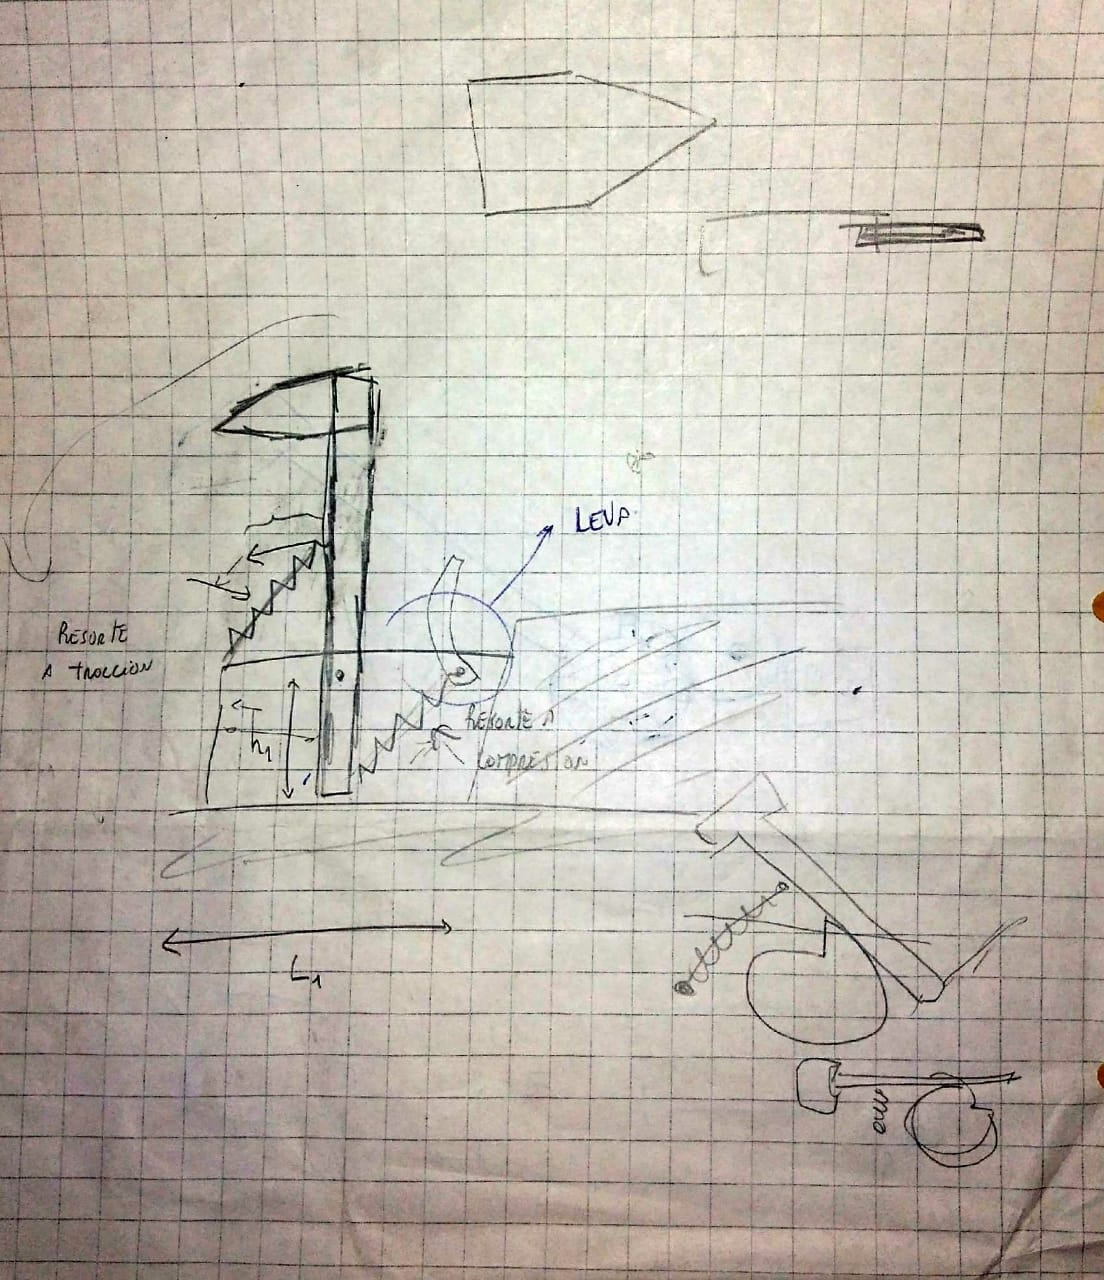 LEVA
RESORTE
A TRACCION
RESORTE A
COMPRESION
h1
L1